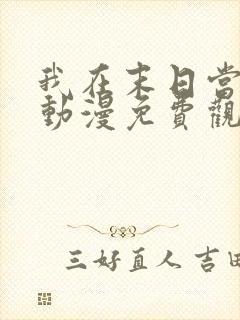 我在末日當
動漫免費觀
三好直人 吉田